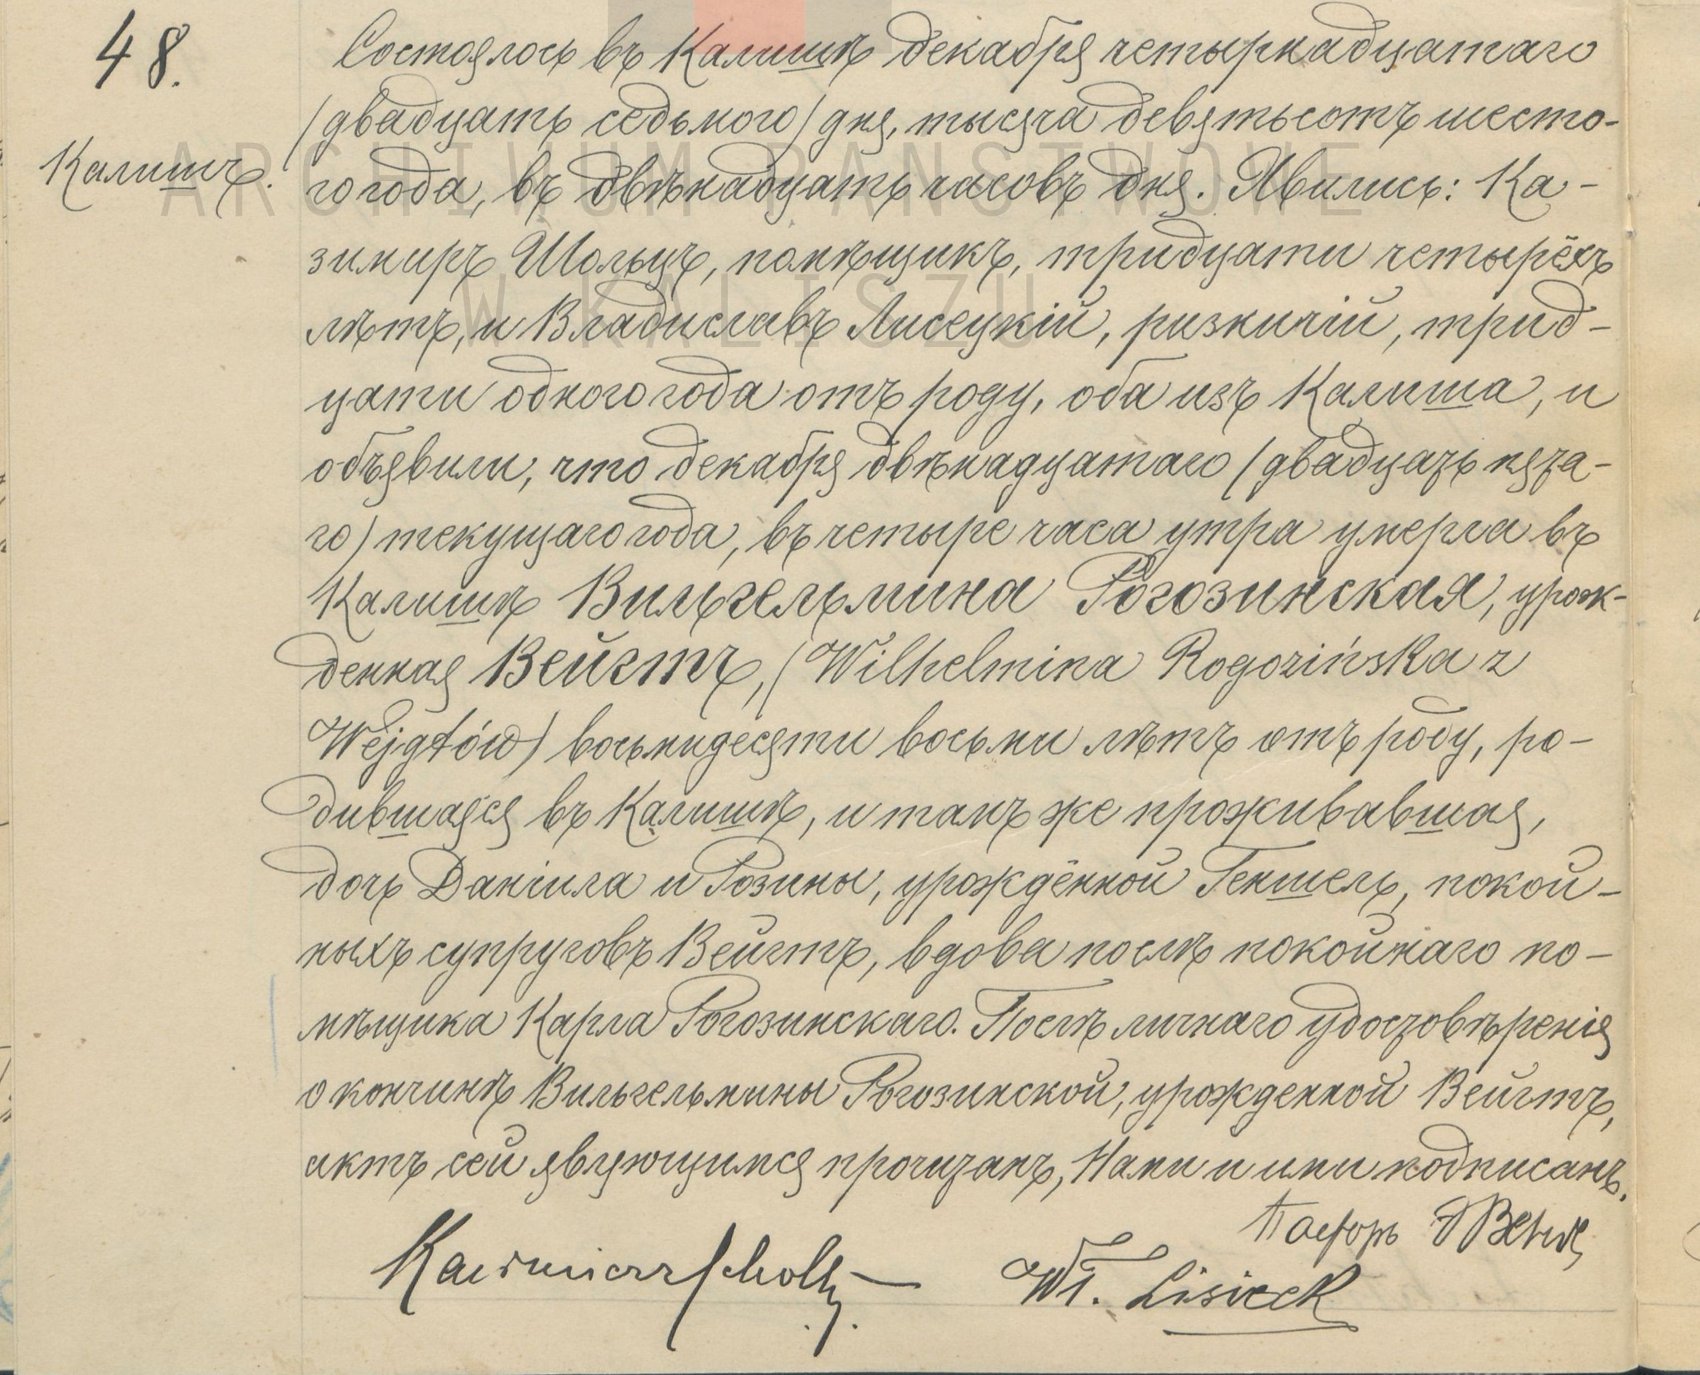 48.
Калишъ.
Состоялось въ Калишѣ декабря четырнадцатаго
(двадцать седьмого) дня, тысяча девятьсотъ шесто-
го года, въ двѣнадцать часовъ дня. Явились: Ка-
зимиръ Шольцъ, помѣщикъ, тридцати четырёхъ
лѣтъ, и Владиславъ Лисецкій, ризничій, трид-
цати одного года отъ роду, оба изъ Калиша, и
объявили, что декабря двѣнадцатаго (двадцать пята-
го) текущаго года, въ четыре часа утра умерла въ
Калишѣ Вильгельмина Рогозинская, урож-
денная Вейгтъ, (Wilhelmina Rogozińska z
Wejgtów) восьмидесяти восьми лѣтъ отъ роду, ро-
дившаяся въ Калишѣ, и тамъ же проживавшая,
дочь Даніила и Розины, урождённой Геншель, покой-
ныхъ супруговъ Вейгтъ, вдова послѣ покойнаго по-
мѣщика Карла Рогозинскаго. Послѣ личнаго удостовѣренія
о кончинѣ Вильгельмины Рогозинской, урожденной Вейгтъ,
актъ сей явующимся прочитанъ, Нами и ими подписанъ.
Пасторъ
Kazimierz Scholtz
Wł. Lisieck
ARCHIWUM PAŃSTWOWE
W KALISZU